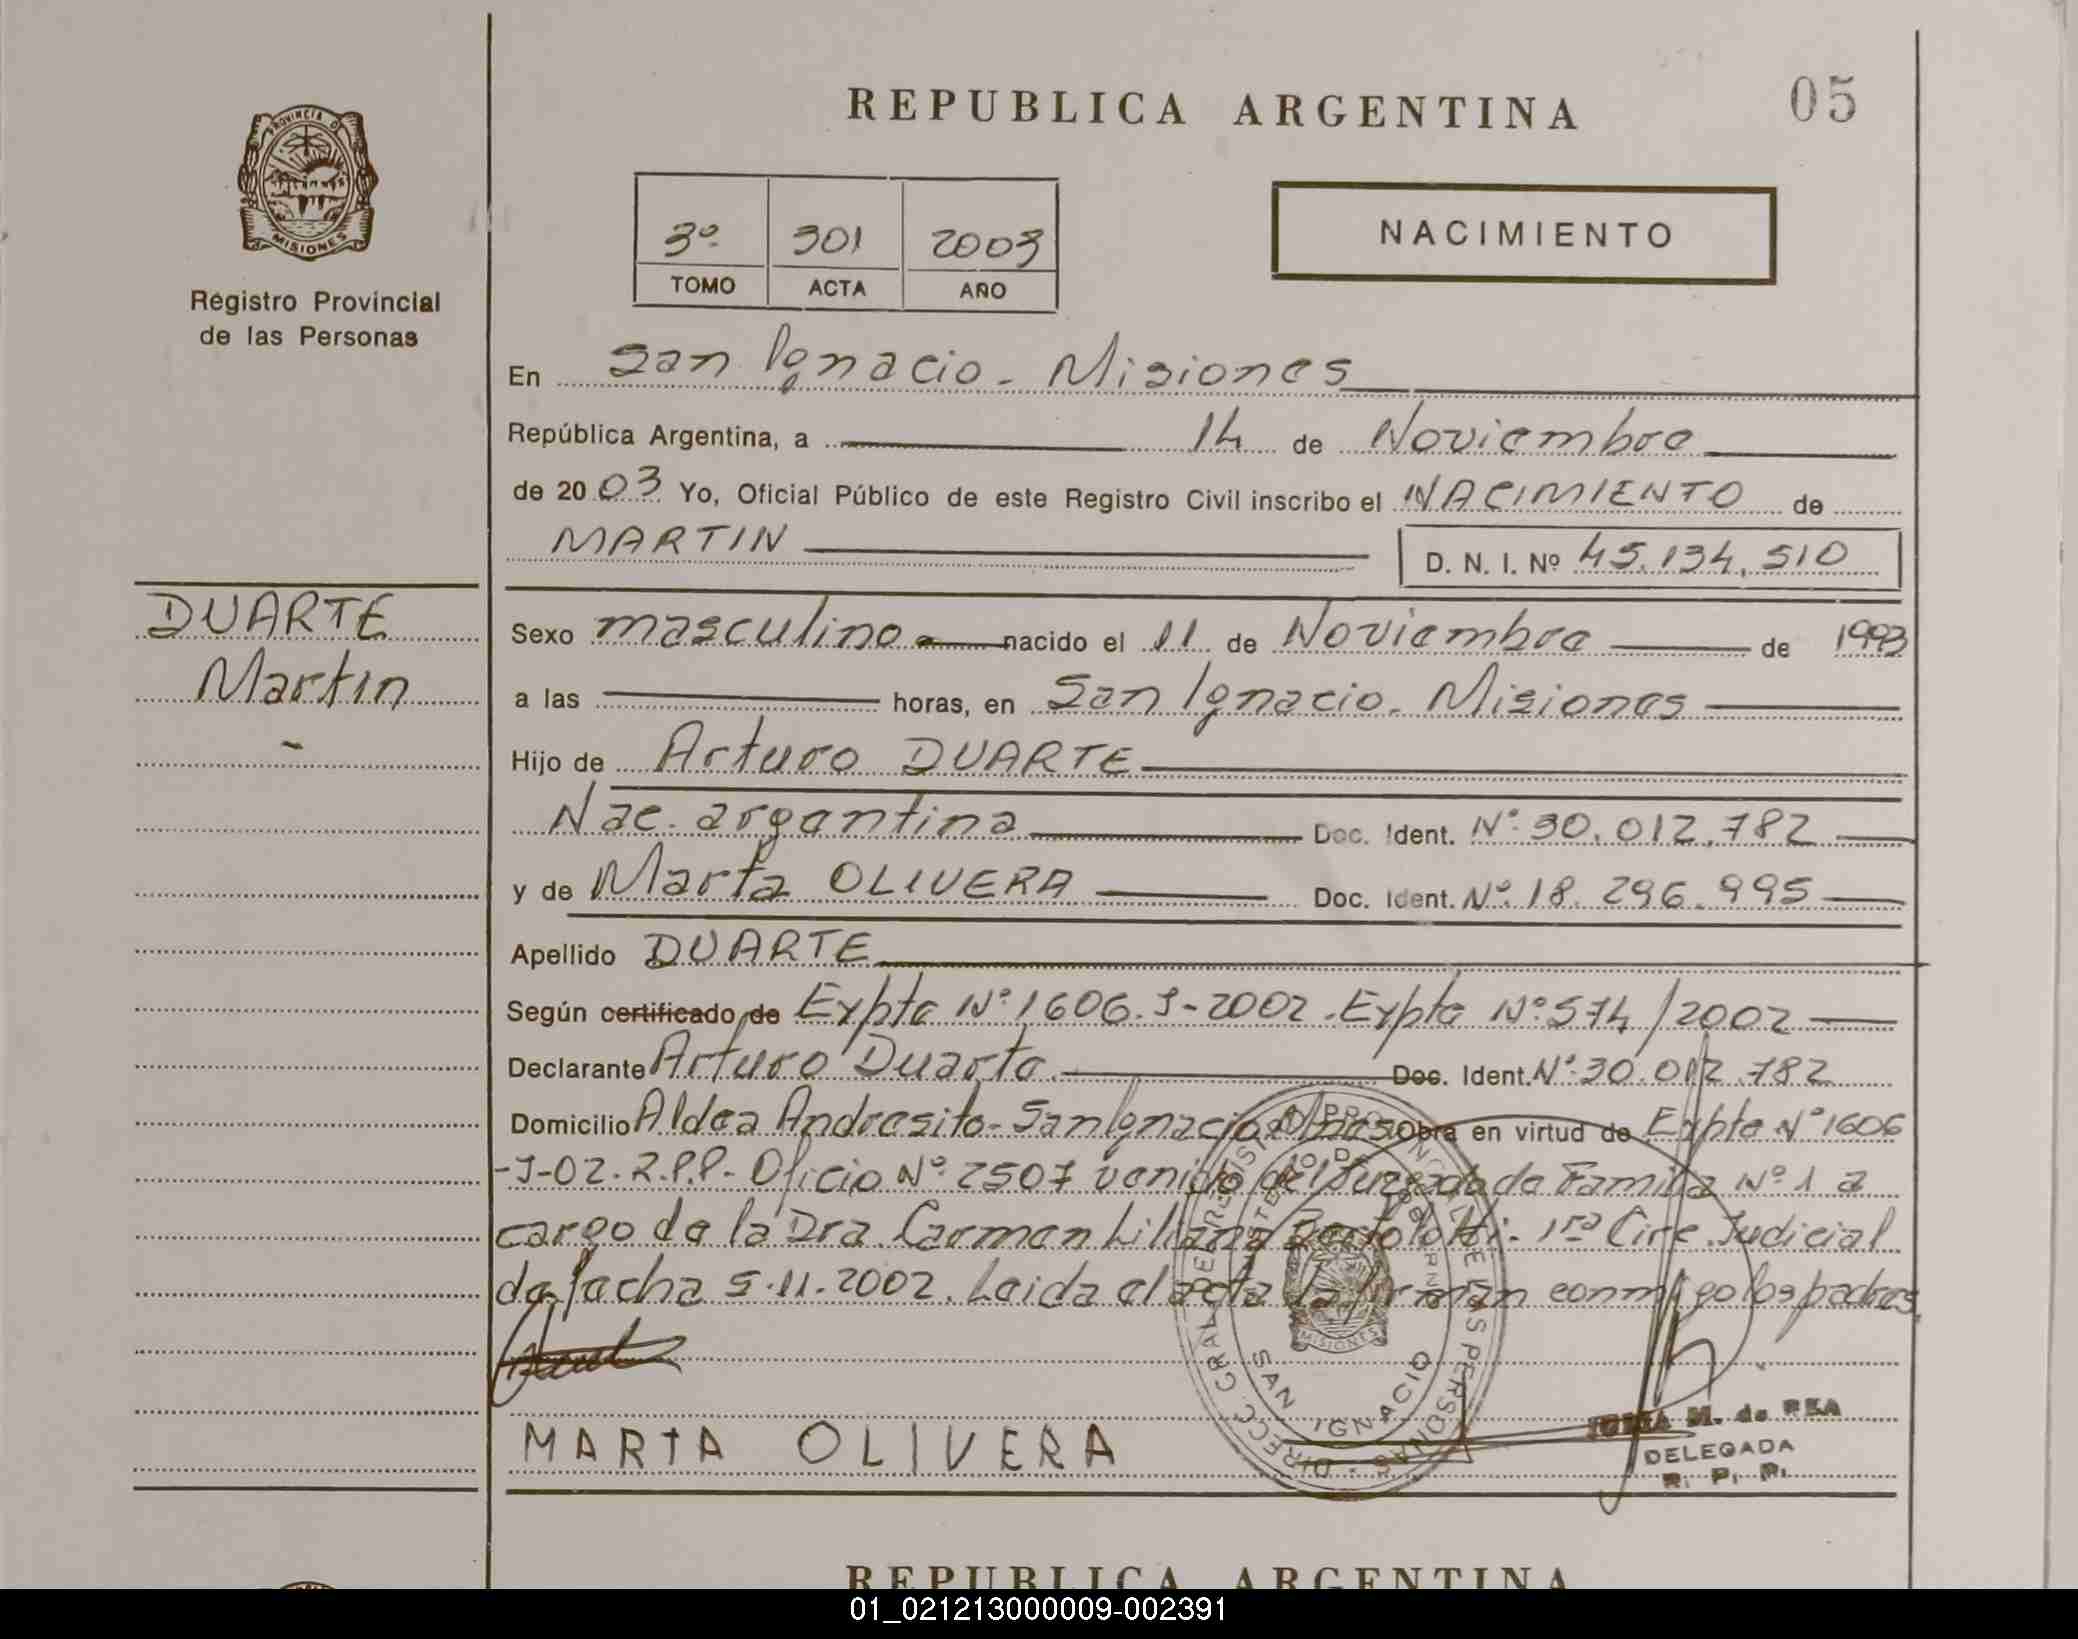 REPUBLICA ARGENTINA
05
PROVINCIA DE
MISIONES
Registro Provincial
de las Personas
3º 301 2003
TOMO ACTA AÑO
NACIMIENTO
En San Ignacio - Misiones
República Argentina, a 14 de Noviembre
de 2003 Yo, Oficial Público de este Registro Civil inscribo el NACIMIENTO de
MARTIN D. N. I. Nº 45.134.510
DUARTE
Martin
Sexo masculino nacido el 11 de Noviembre de 1993
a las horas, en San Ignacio - Misiones
Hijo de Arturo DUARTE
Nac. argentina Doc. Ident. Nº 30.012.782
y de Marta OLIVERA Doc. Ident. Nº 18.296.995
Apellido DUARTE
Según certificado de Expte Nº 1606-J-2002. Expte Nº 574/2002
Declarante Arturo Duarte Doc. Ident. Nº 30.012.782
Domicilio Aldea Andresito - San Ignacio Mnes Obra en virtud de Expte Nº 1606
-J-02-R.P.P- Oficio Nº 2507 venido del Juzgado de Familia Nº 1 a
cargo de la Dra. Carmen Liliana Bortolotti - 1ra Circ. Judicial
de fecha 5.11.2002. Leida el acta la firman conmigo los padres
MARTA OLIVERA
SAN IGNACIO
MISIONES
M. de REA
DELEGADA
R. P. P.
REPUBLICA ARGENTINA
01_021213000009-002391